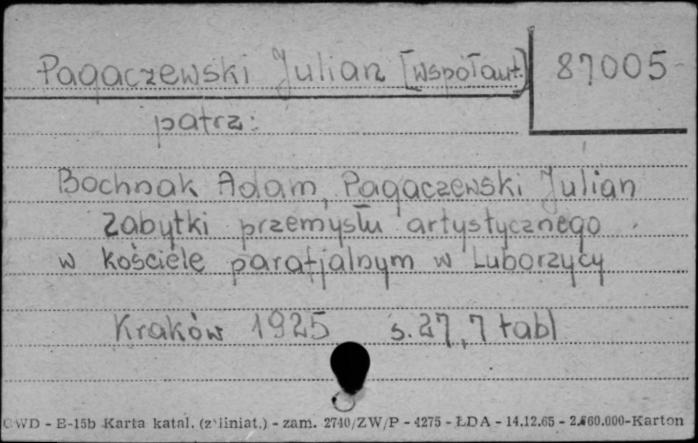 Pagaczewski Julian [współaut.] 87005
patrz:
Bochnak Adam, Pagaczewski Julian
Zabytki przemysłu artystycznego
w kościele parafjalnym w Luborzycy
Kraków 1925 s. 27, 7 tabl
CWD - E-15b Karta katal. (z liniat.) - zam. 2740/ZW/P - 4275 - ŁDA - 14.12.65 - 2.860.000-Karton